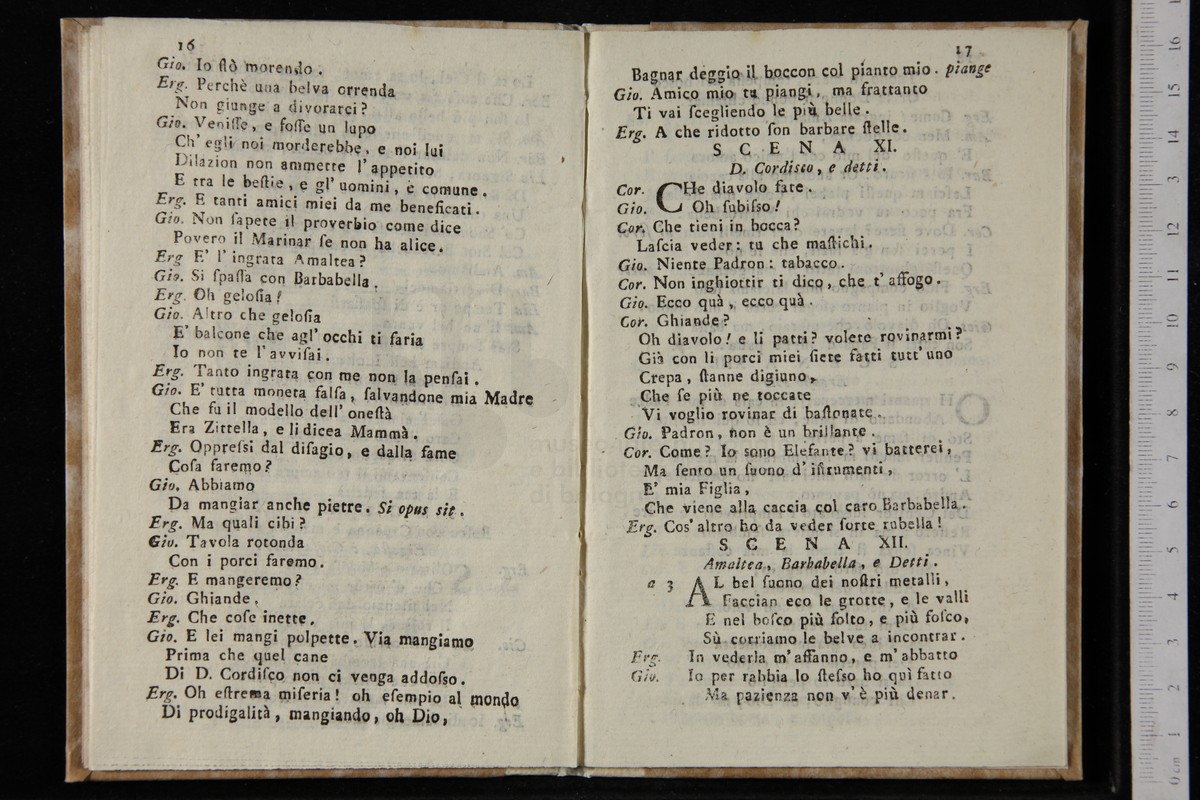 16
Gio. Io ſtò morendo.
Erg. Perchè una belva orrenda
Non giunge a divorarci?
Gio. Veniſſe, e foſſe un lupo
Ch' egli noi morderebbe, e noi lui
Dilazion non ammette l' appetito
E tra le beſtie, e gl' uomini, è comune.
Erg. E tanti amici miei da me beneficati.
Gio. Non ſapete il proverbio come dice
Povero il Marinar ſe non ha alice.
Erg E' l' ingrata Amaltea?
Gio. Si ſpaſſa con Barbabella.
Erg. Oh geloſia!
Gio. Altro che geloſia
E' balcone che agl' occhi ti faria
Io non te l' avviſai.
Erg. Tanto ingrata con me non la penſai.
Gio. E' tutta moneta falſa, ſalvandone mia Madre
Che fu il modello dell' oneſtà
Era Zittella, e li dicea Mammà.
Erg. Oppreſsi dal diſagio, e dalla fame
Coſa faremo?
Gio. Abbiamo
Da mangiar anche pietre. Si opus sit.
Erg. Ma quali cibi?
Gio. Tavola rotonda
Con i porci faremo.
Erg. E mangeremo?
Gio. Ghiande.
Erg. Che coſe inette.
Gio. E lei mangi polpette. Via mangiamo
Prima che quel cane
Di D. Cordiſco non ci venga addoſso.
Erg. Oh eſtrema miſeria! oh eſempio al mondo
Di prodigalità, mangiando, oh Dio,
17
Bagnar deggio il boccon col pianto mio. piange
Gio. Amico mio tu piangi, ma frattanto
Ti vai ſcegliendo le più belle.
Erg. A che ridotto ſon barbare ſtelle.
SCENA XI.
D. Cordisco, e detti.
Cor. CHe diavolo fate.
Gio. Oh ſubiſso!
Cor. Che tieni in bocca?
Laſcia veder: tu che maſtichi.
Gio. Niente Padron: tabacco.
Cor. Non inghiottir ti dico, che t' affogo.
Gio. Ecco quà, ecco quà.
Cor. Ghiande?
Oh diavolo! e li patti? volete rovinarmi?
Già con li porci miei ſiete fatti tutt' uno
Crepa, ſtanne digiuno,
Che ſe più ne toccate
Vi voglio rovinar di baſtonate.
Gio. Padron, non è un brillante.
Cor. Come? Io sono Elefante? vi batterei,
Ma ſento un ſuono d' iſtrumenti,
E' mia Figlia,
Che viene alla caccia col caro Barbabella.
Erg. Cos' altro ho da veder ſorte rubella!
SCENA XII.
Amaltea, Barbabella, e Detti.
a 3 AL bel ſuono dei noſtri metalli,
Faccian eco le grotte, e le valli
E nel boſco più folto, e più foſco,
Sù corriamo le belve a incontrar.
Erg. In vederla m' affanno, e m' abbatto
Gio. Io per rabbia lo ſteſso ho quì fatto
Ma pazienza non v' è più denar.